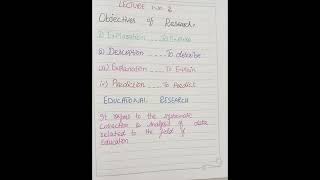 LECTURE No. 2
Objectives of Research:-
i) Exploration ---- To Explore
ii) Description ---- To describe
iii) Explanation ---- To Explain
iv) Prediction ---- To Predict
EDUCATIONAL RESEARCH
It refers to the systematic
collection & analysis of data
related to the field of
education